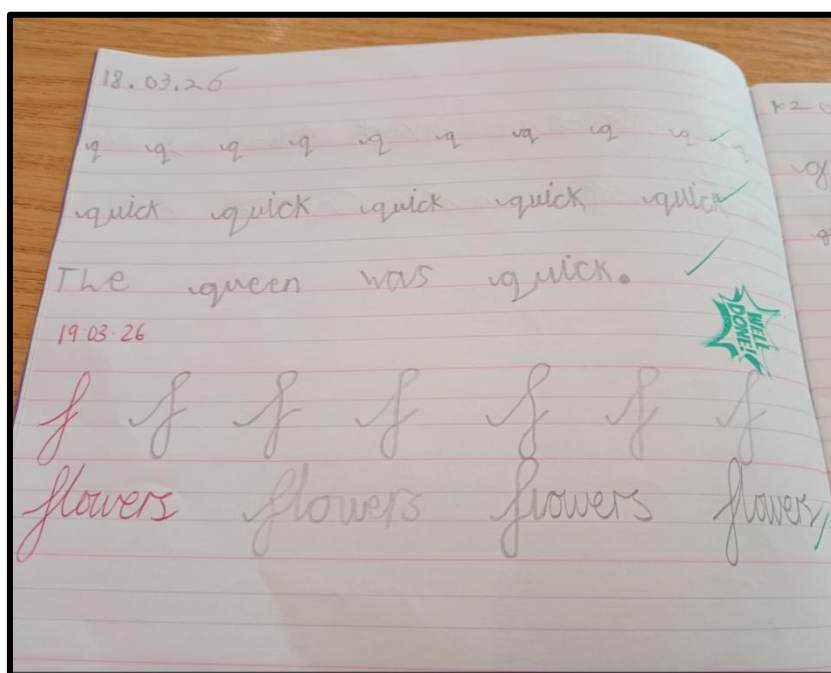 18.03.26
q q q q q q q q q
quick quick quick quick quick
The queen was quick.
19.03.26
WELL DONE!
f f f f f f f
flowers flowers flowers flowers